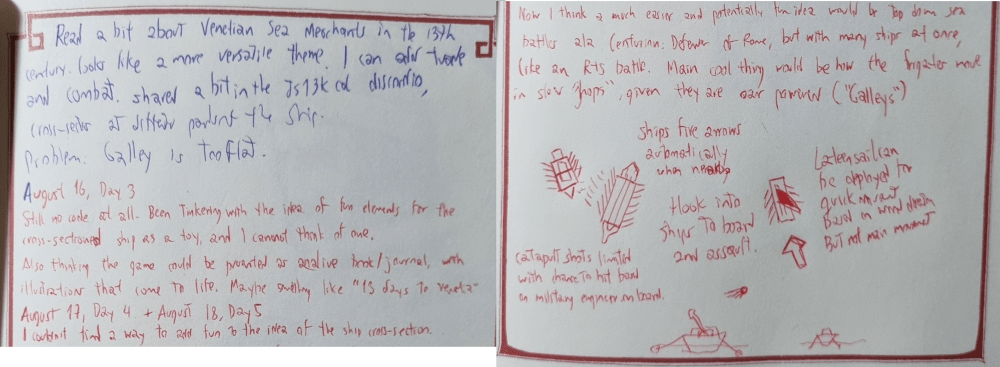 Read a bit about Venetian Sea Merchants in the 13th
century. Looks like a more versatile theme. I can add trade
and combat. Shared a bit in the Js13k discord,
cross-section at different parts of the ship.
Problem: Galley is too flat.
August 16, Day 3
Still no code at all. Been tinkering with the idea of fun elements for the
cross-sectioned ship as a toy, and I cannot think of one.
Also thinking the game could be presented as an alive book/journal, with
illustrations that come to life. Maybe something like "13 days to Venezia"
August 17, Day 4 + August 18, Day 5
I couldn't find a way to add fun to the idea of the ship cross-section.
Now I think a much easier and potentially fun idea would be top down sea
battles ala Centurion: Defender of Rome, but with many ships at once,
like an RTS battle. Main cool thing would be how the frigates move
in slow "hops", given they are oar powered ("Galleys")
ships fire arrows
automatically
when nearby
Hook into
ships to board
and assault.
Lateen sail can
be deployed for
quick movement
Based on wind direction
But not main movement
Catapult shots limited
with chance to hit based
on military engineer on board.